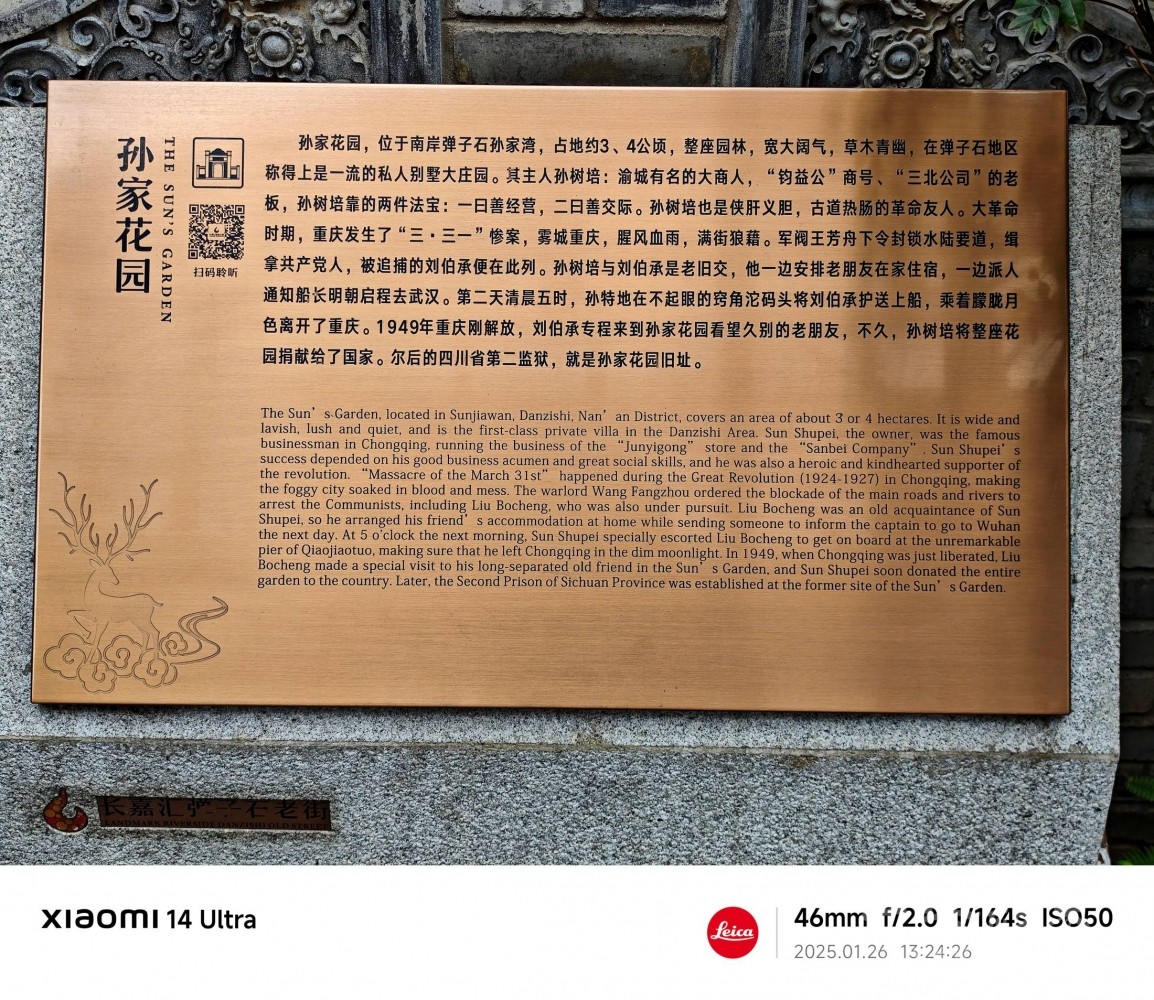 孙家花园
THE SUN'S GARDEN
扫码聆听
孙家花园，位于南岸弹子石孙家湾，占地约3、4公顷，整座园林，宽大阔气，草木青幽，在弹子石地区
称得上是一流的私人别墅大庄园。其主人孙树培：渝城有名的大商人，“钧益公”商号、“三北公司”的老
板，孙树培靠的两件法宝：一曰善经营，二曰善交际。孙树培也是侠肝义胆，古道热肠的革命友人。大革命
时期，重庆发生了“三·三一”惨案，雾城重庆，腥风血雨，满街狼藉。军阀王芳舟下令封锁水陆要道，缉
拿共产党人，被追捕的刘伯承便在此列。孙树培与刘伯承是老旧交，他一边安排老朋友在家住宿，一边派人
通知船长明朝启程去武汉。第二天清晨五时，孙特地在不起眼的窍角沱码头将刘伯承护送上船，乘着朦胧月
色离开了重庆。1949年重庆刚解放，刘伯承专程来到孙家花园看望久别的老朋友，不久，孙树培将整座花
园捐献给了国家。尔后的四川省第二监狱，就是孙家花园旧址。
The Sun's Garden, located in Sunjiawan, Danzishi, Nan'an District, covers an area of about 3 or 4 hectares. It is wide and
lavish, lush and quiet, and is the first-class private villa in the Danzishi Area. Sun Shupei, the owner, was the famous
businessman in Chongqing, running the business of the “Junyigong” store and the “Sanbei Company”. Sun Shupei's
success depended on his good business acumen and great social skills, and he was also a heroic and kindhearted supporter of
the revolution. “Massacre of the March 31st” happened during the Great Revolution (1924-1927) in Chongqing, making
the foggy city soaked in blood and mess. The warlord Wang Fangzhou ordered the blockade of the main roads and rivers to
arrest the Communists, including Liu Bocheng, who was also under pursuit. Liu Bocheng was an old acquaintance of Sun
Shupei, so he arranged his friend's accommodation at home while sending someone to inform the captain to go to Wuhan
the next day. At 5 o'clock the next morning, Sun Shupei specially escorted Liu Bocheng to get on board at the unremarkable
pier of Qiaojiaotuo, making sure that he left Chongqing in the dim moonlight. In 1949, when Chongqing was just liberated, Liu
Bocheng made a special visit to his long-separated old friend in the Sun's Garden, and Sun Shupei soon donated the entire
garden to the country. Later, the Second Prison of Sichuan Province was established at the former site of the Sun's Garden.
长嘉汇弹子石老街
LANDMARK RIVERSIDE DANZISHI OLD STREET
XIAOMI 14 Ultra
Leica
46mm f/2.0 1/164s ISO50
2025.01.26 13:24:26